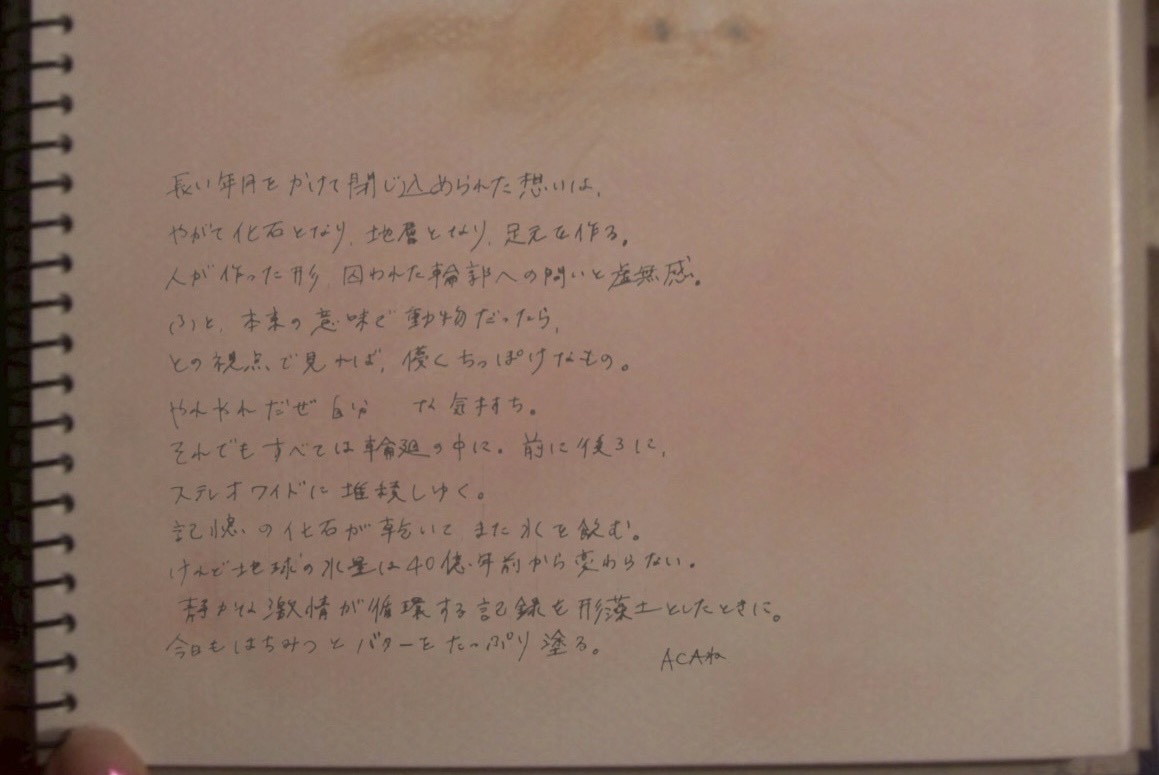 長い年月をかけて閉じ込められた想いは、
やがて化石となり、地層となり、足元を作る。
人が作った形 囚われた輪郭への問いと虚無感。
ふと、本来の意味で動物だったら、
との視点で見れば、儚くちっぽけなもの。
やれやれだぜ 自分 な気持ち。
それでもすべては輪廻の中に。前に後ろに、
ステレオワイドに堆積しゆく。
記憶の化石が乾いて また水を飲む。
けれど地球の水量は40億年前から変わらない。
静かな激情が循環する記録を形藻土としたときに。
今日もはちみつとバターをたっぷり塗る。
ACAね